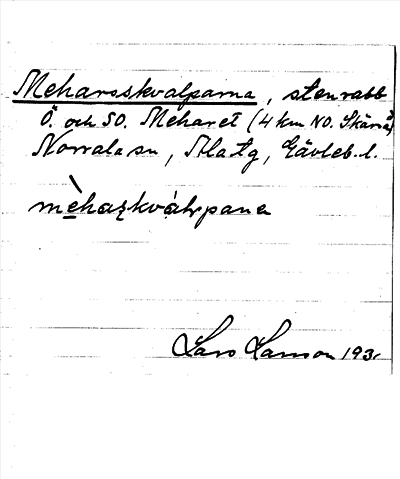 Meharsskvalparna, stenrabb
Ö. och SO. Meharet (4 km NO. Skärså)
Norrala sn, Ala tg, Gävleb. l.
Lars Larsson 193